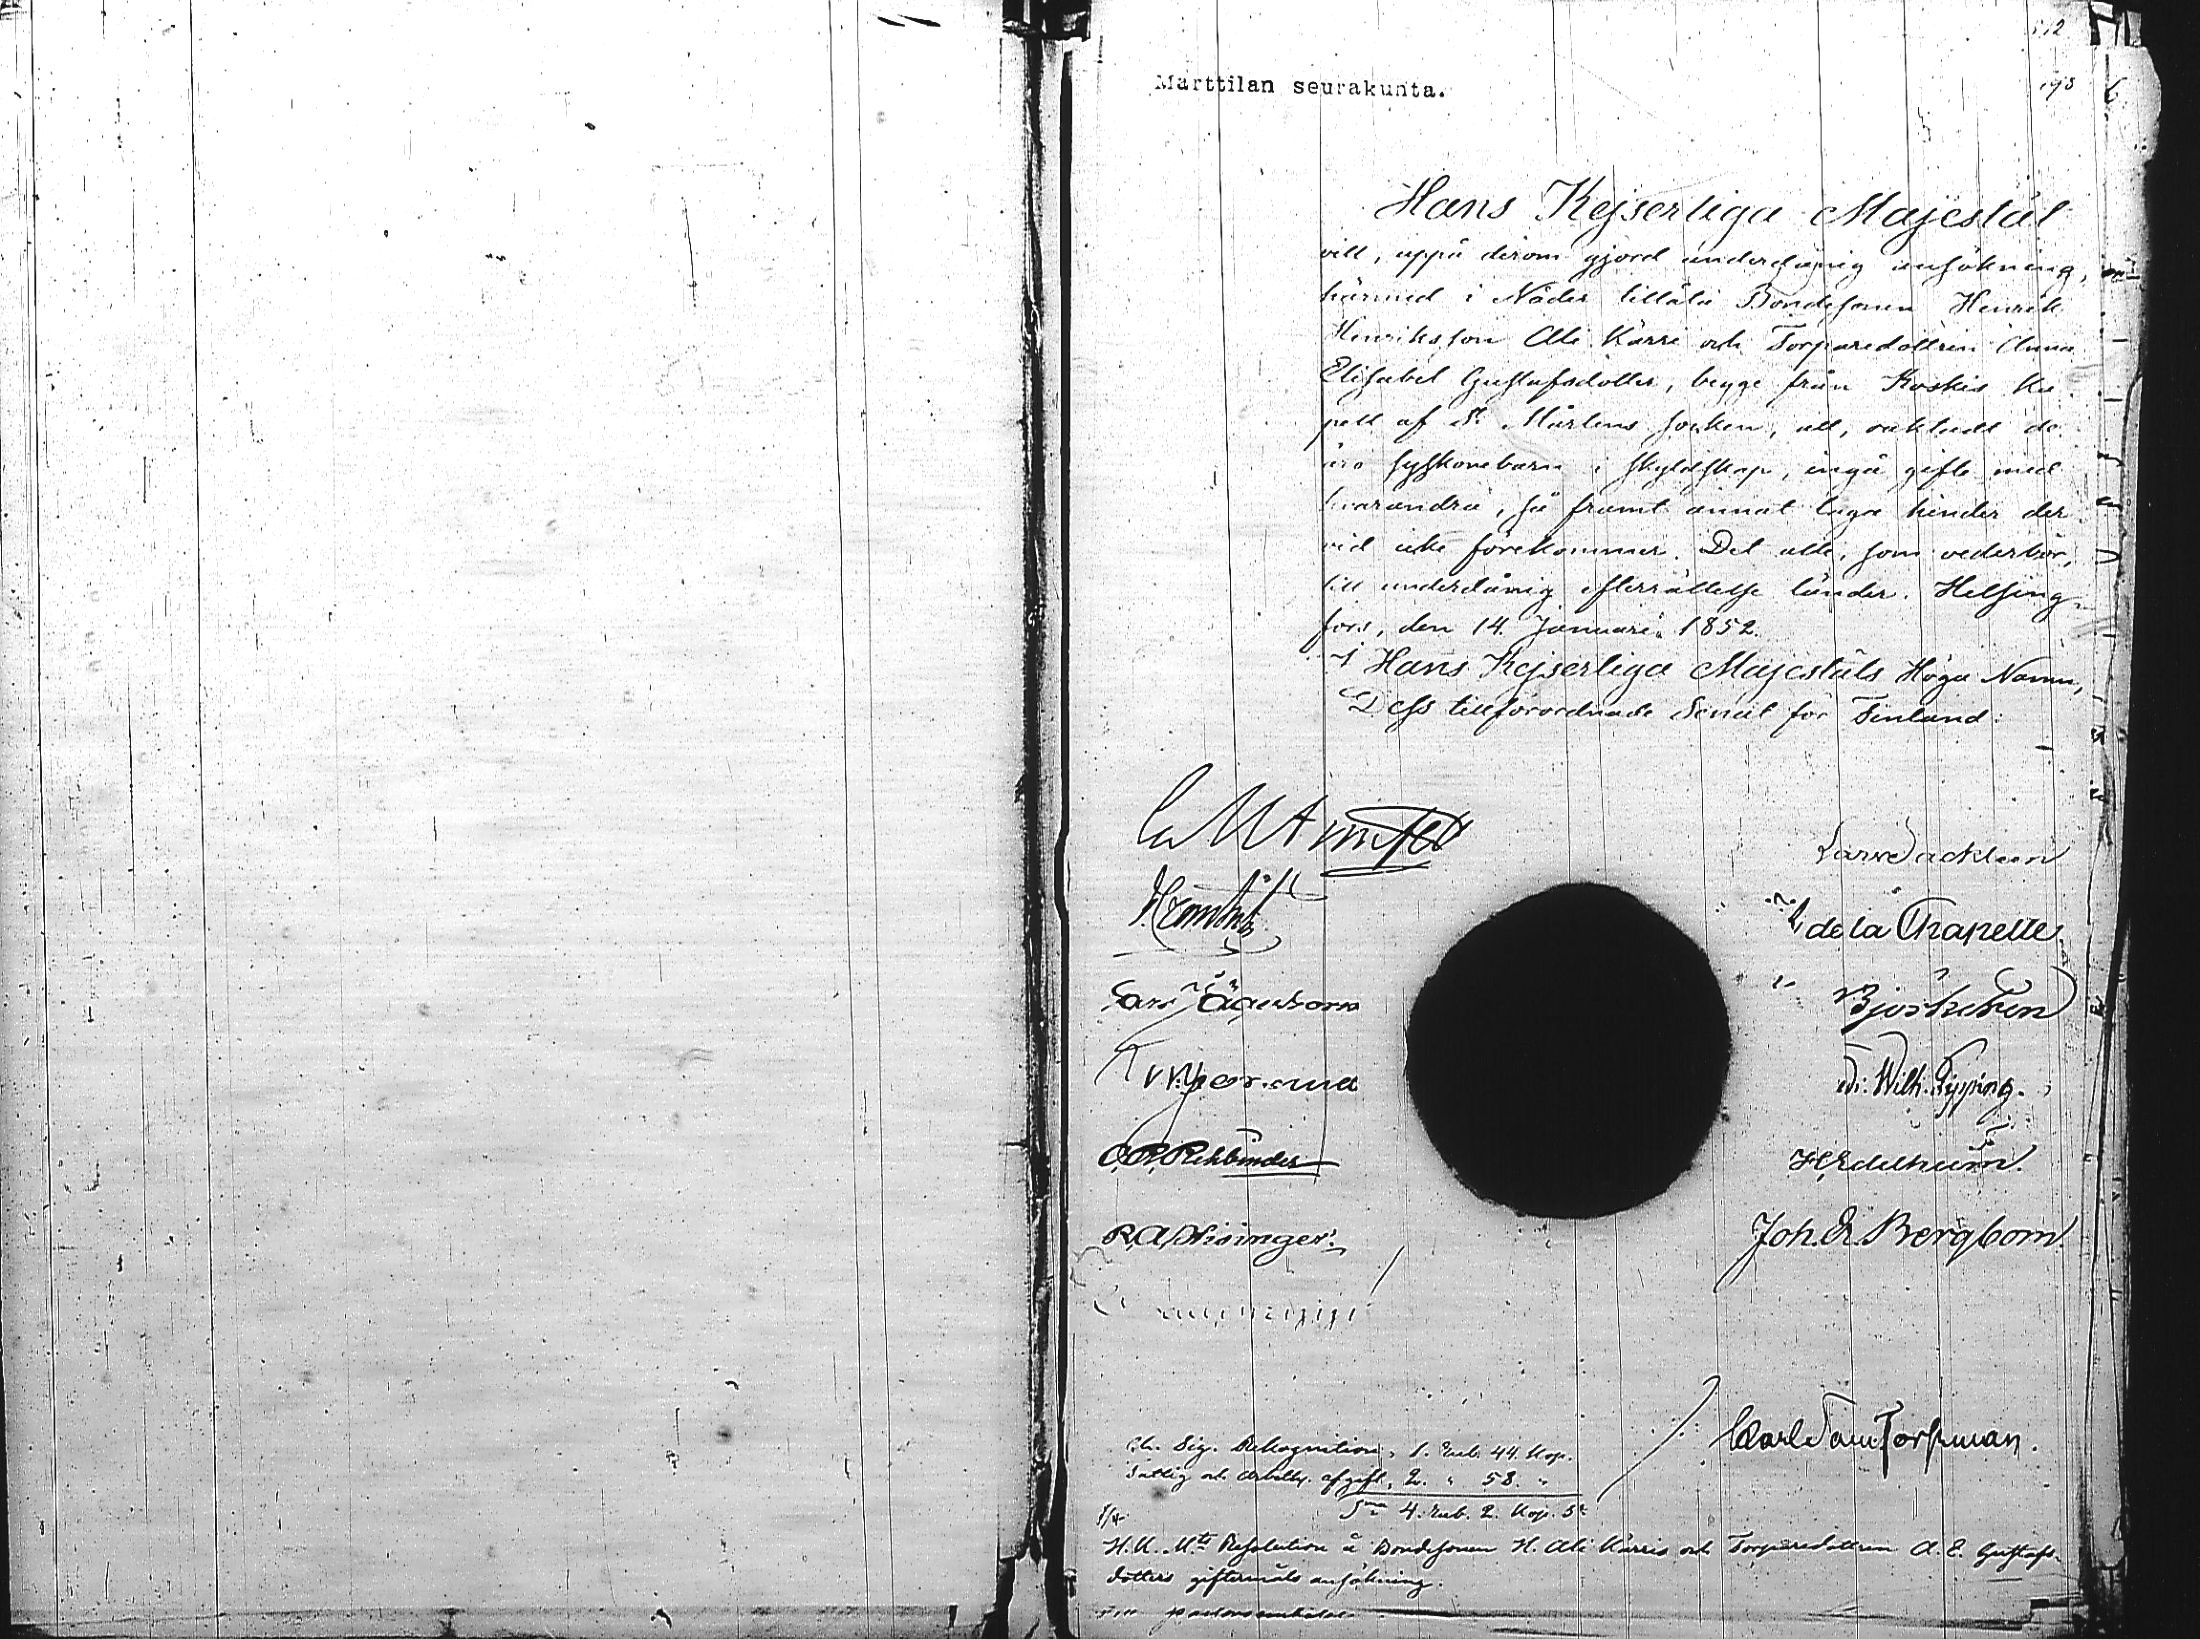 512
Marttilan seurakunta.
195
6
Hans Kejserliga Majestät
vill, uppå derom gjord underdånig ansökning,
härmed i Nåder tillåta Bondesonen Henrik
Henriksson Ali Karri och Torparedottren Anna
Elisabet Gustafsdotter, begge från Koskis Ka-
pell af St Mårtens socken, att, oaktadt de
äro syskonebarn i skyldskap, ingå gifte med
hvarandra, så framt annat laga hinder der
vid icke förekommer. Det alle, som vederbör,
till underdånig efterrättelse länder. Helsing-
fors, den 14. Januari 1852.
I Hans Kejserliga Majestäts Höga Namn,
Dess tillförordnade Senat för Finland:
Lars Sackleen
de la Chapelle
Björksten
Fr: Wilh. Pipping.
C. R. Rehbinder
H, Edelheim.
R A Hisinger.
Joh. E. Bergbom.
Carl Sam Forsman.
Ch. Sig. Rekognition, 1. Rub. 44. Kop.
och afgift, 2. " 58. "
S:a 4. Rub. 2. Kop. Sr
H. K. M:ts Resolution å Bondesonen H. Ali Karris och Torparedottren A. E. Gustafs-
dotters giftermåls ansökning.